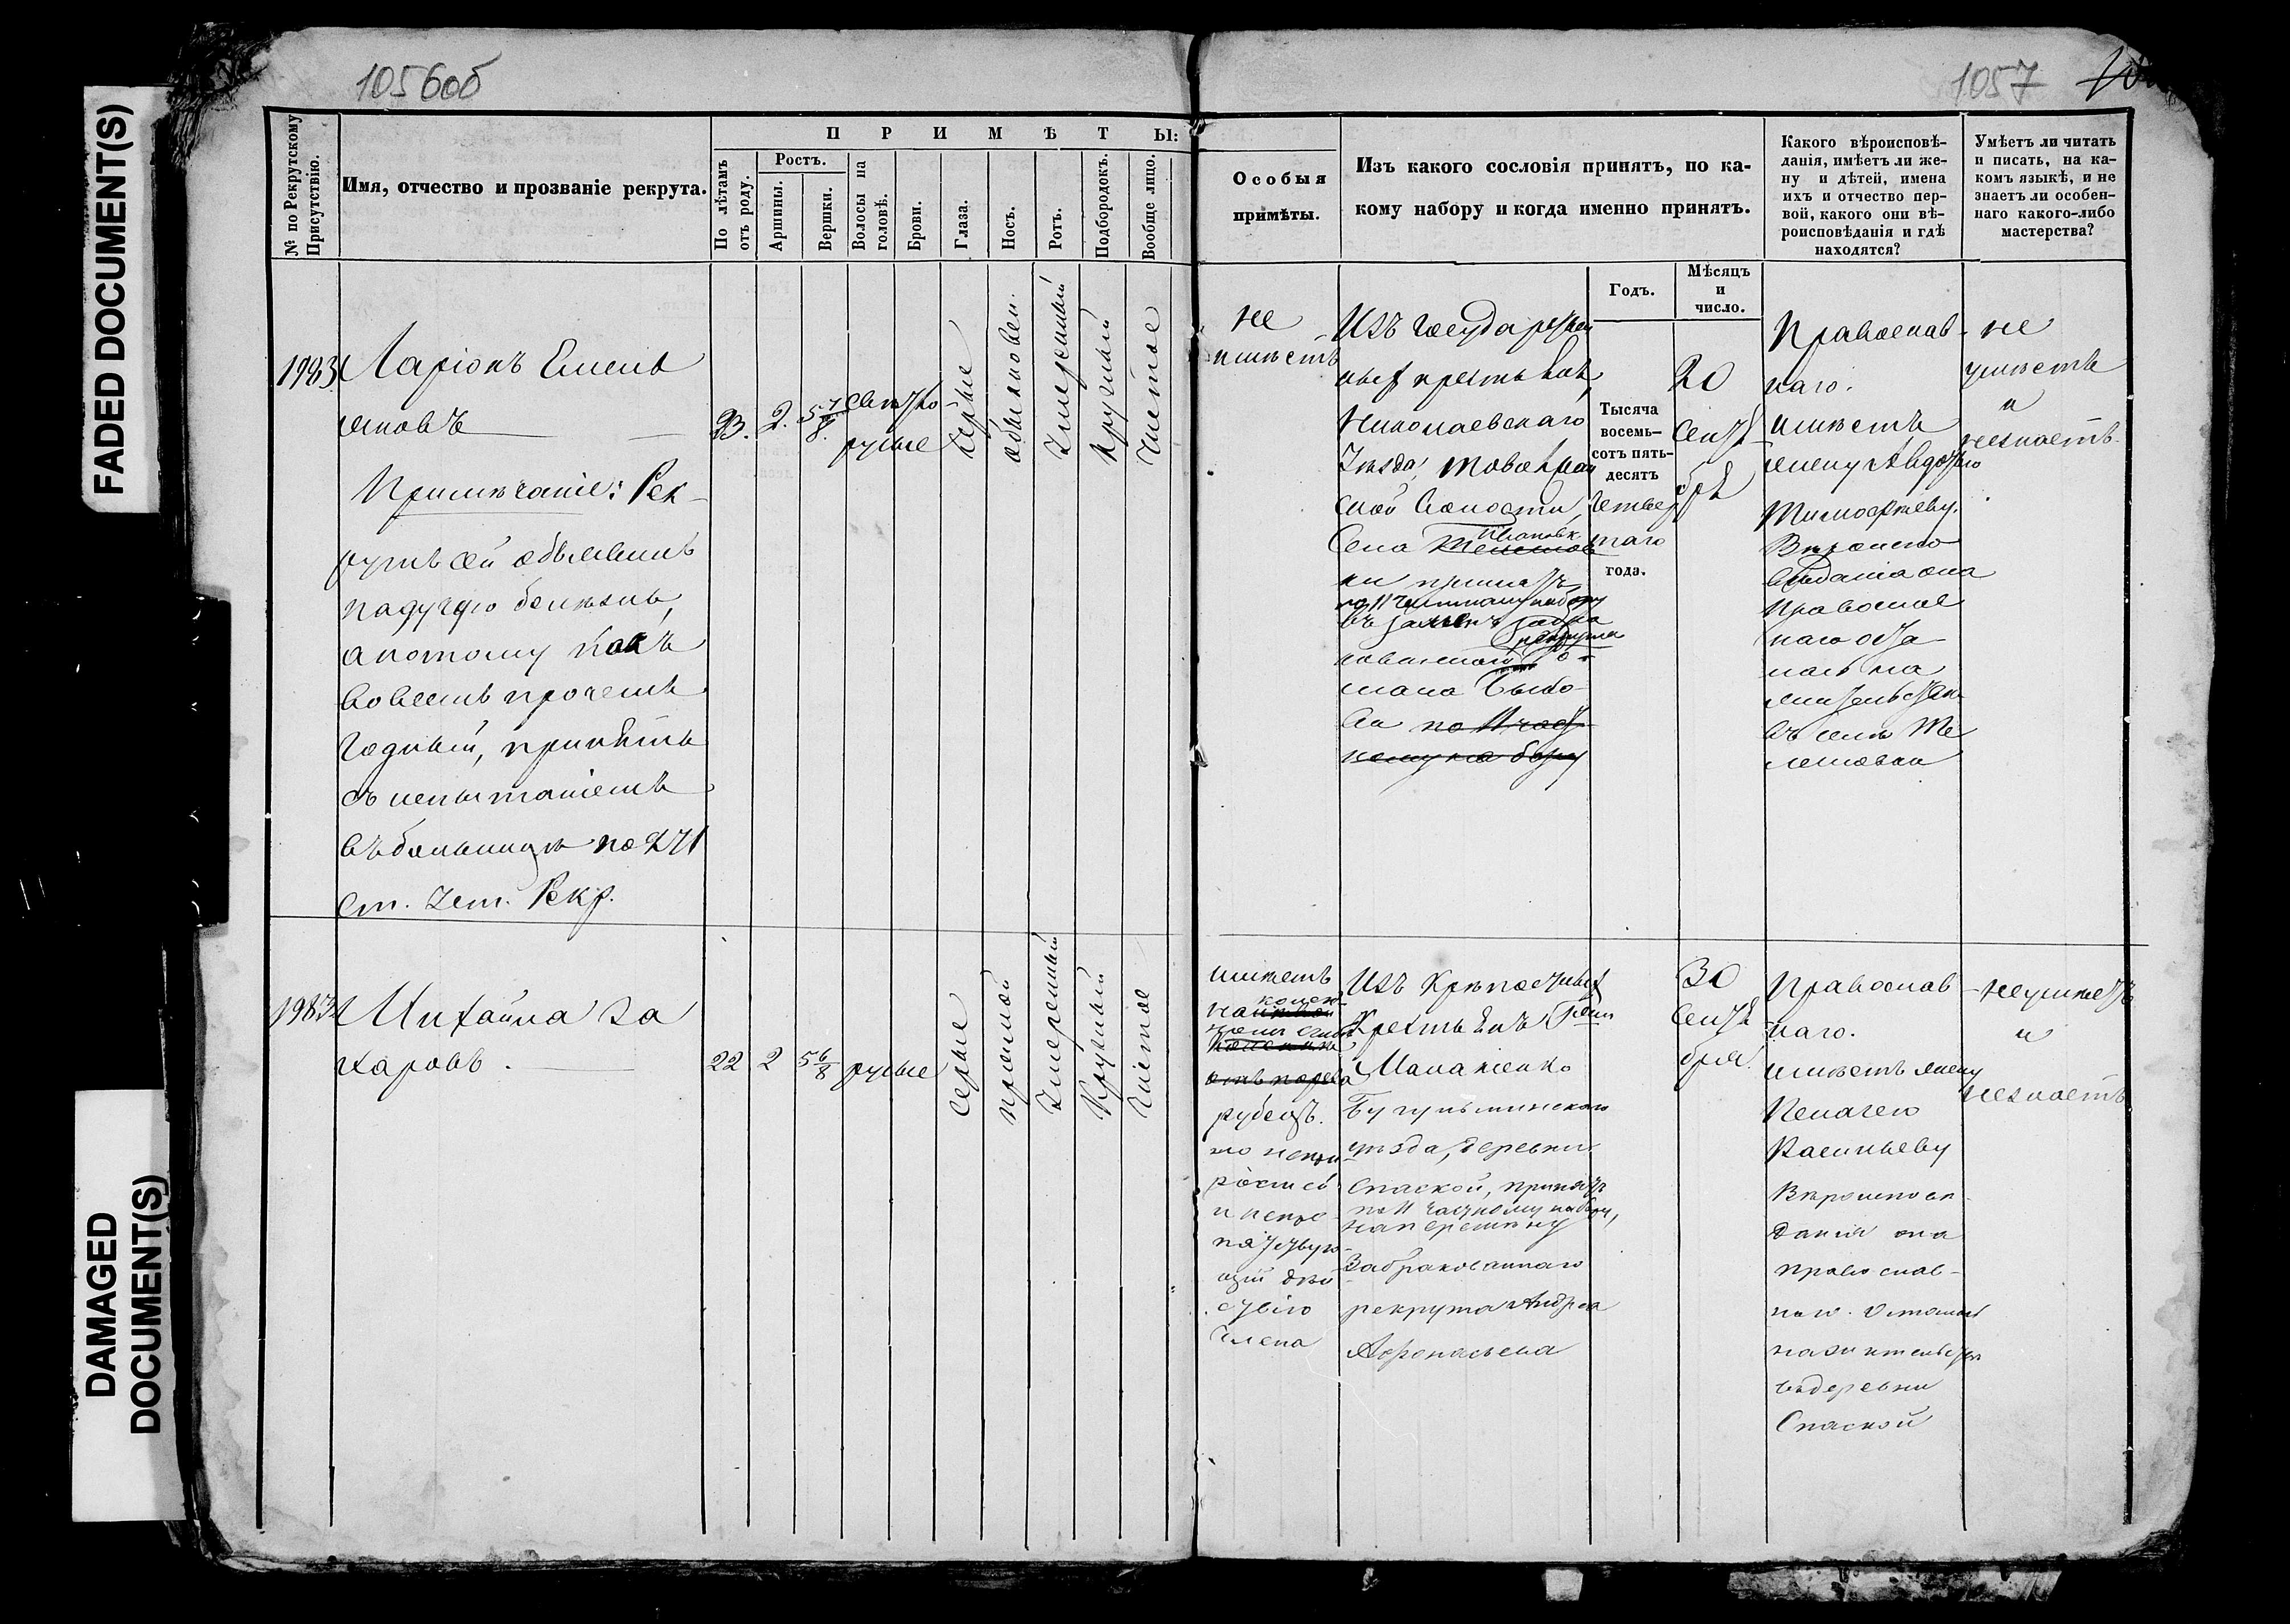 FADED DOCUMENT(S)
DAMAGED
DOCUMENT(S)
1056об
1057
№ по Рекрутскому
Присутствію.
Имя, отчество и прозваніе рекрута.
ПРИМѢТЫ:
По лѣтамъ
отъ роду.
Ростъ.
Аршины.
Вершки.
Волосы на
головѣ.
Брови.
Глаза.
Носъ.
Ротъ.
Подбородокъ.
Вообще лицо.
Особыя
примѣты.
Изъ какого сословія принятъ, по ка-
кому набору и когда именно принятъ.
Годъ.
Мѣсяцъ
и
число.
Какого вѣроисповѣ-
данія, имѣетъ ли же-
ну и дѣтей, имена
ихъ и отчество пер-
вой, какого они вѣ-
роисповѣданія и гдѣ
находятся?
Умѣетъ ли читать
и писать, на ка-
комъ языкѣ, и не
знаетъ ли особен-
наго какого-либо
мастерства?
Ларіонъ Емель
яновъ
Примѣчаніе: Рек-
рутъ сей объявилъ
падучую болѣзнь,
а потому какъ
во всемъ прочемъ
годный, принятъ
съ испытаніемъ
въ больницѣ по 271
ст. Уст. Рекр.
23.
2.
5 7/8.
Свѣтло
русые
Сѣрые
обыкновен.
Умеренный
Круглый
Чистое
не
имѣетъ
Изъ государствен
ныхъ крестьянъ,
Николаевскаго
Уѣзда,
Волости,
Села
ки принятъ
по 11 частному набору
рекрута
мана
по 11 част
ному набору
Тысяча
восемь-
сотъ пять-
десятъ
четвер
таго
года.
20
Сентя
бря
Православ-
наго.
имѣетъ
жену Авдотью
Тимофѣеву.
Вѣроиспо
вѣданія она
православ
наго оста
лась на
жительствѣ
въ селѣ
не
умѣетъ
и
незнаетъ
Михайла За
харовъ.
22
2
5 6/8
русые
Серые
прямой
Умеренный
Круглый
Чистое
имѣетъ
рубецъ.
члена
Изъ Крѣпостныхъ
Крестьянъ Ген
Бугульминского
уѣзда, деревни
Спаской, принятъ
по 11 частному набору,
на перемѣну
Забракованнаго
рекрута Андрея
Афонасьева
30
Сентя
бря
Православ-
наго.
имѣетъ жену
Пелагею
Васильеву
Вѣроисповѣ
данія она
православ-
наго. Осталась
на жительствѣ
въ деревни
Спаской
неумѣетъ
и
незнаетъ